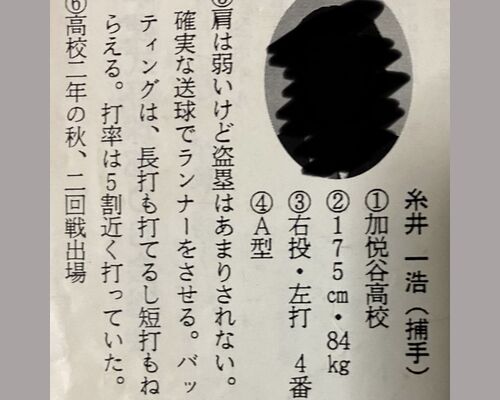 糸井 一浩(捕手)
①加悦谷高校
②175cm・84kg
③右投・左打 4番
④A型
⑤肩は弱いけど盗塁はあまりされない。
確実な送球でランナーをさせる。バッ
ティングは、長打も打てるし短打もね
らえる。打率は5割近く打っていた。
⑥高校二年の秋、二回戦出場